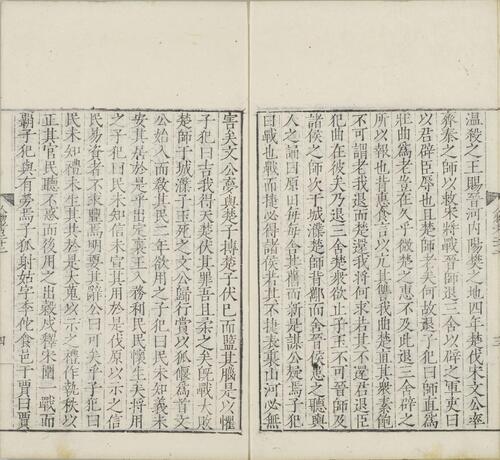 温殺之王賜晉河内陽樊之地四年楚伐宋文公率
齊秦之師以救宋將戰晉師退三舍以辟之軍吏曰
以君辟臣辱也且楚師老矣何故退子犯曰師直爲
壯曲爲老豈在久乎微楚之惠不及此退三舍辟之
所以報也背惠食言以亢其讐我曲楚直其衆素飽
不可謂老我退而楚還我將何求若其不還君退臣
犯曲在彼矣乃退三舍楚衆欲止子玉不可晉師及
諸侯之師次于城濮楚師背酅而舍晉侯患之聽輿
人之誦曰原田每每舍其舊而新是謀公疑焉子犯
曰戰也戰而捷必得諸侯若其不捷表裏山河必無
害矣文公夢與楚子搏楚子伏已而盬其腦是以懼
子犯曰吉我得天楚伏其罪吾且柔之矣旣戰大敗
楚師于城濮子玉死之文公歸行賞以狐偃爲首文
公始入而敎其民二年欲用之子犯曰民未知義未
安其居於是乎出定襄王入務利民民懷生矣將用
之子犯曰民未知信未宣其用於是伐原以示之信
民易資者不求豐焉明要其辭公曰可矣乎子犯曰
民未知禮未生其共於是大蒐以示之禮作執秩以
正其官民聽不惑而後用之出榖戍釋宋圍一戰而
霸子犯與有勞焉子狐射姑字季佗食邑于賈曰賈
四